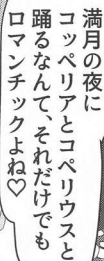 満月の夜に
コッペリアとコペリウスと
踊るなんて、それだけでも
ロマンチックよね♡